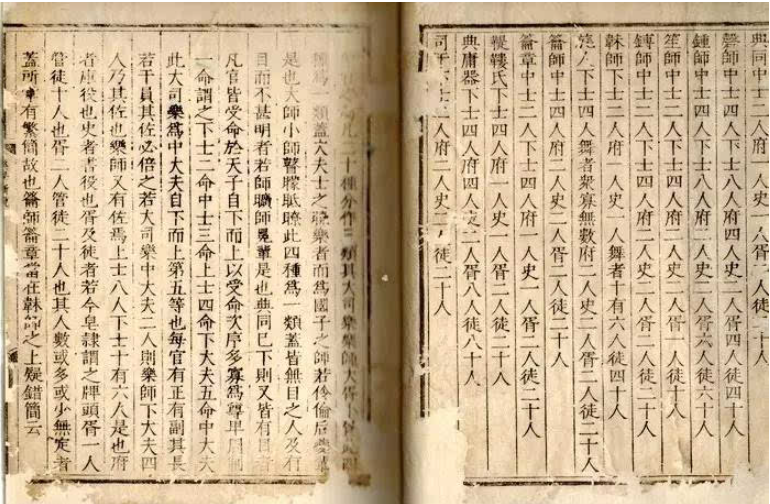 典同中士二人府一人史一人胥二人徒二十人
磬師中士四人下士八人府四人史二人胥四人徒四十人
鍾師中士四人下士八人府二人史二人胥六人徒六十人
笙師中士二人下士四人府二人史二人胥一人徒十人
鎛師中士二人下士四人府二人史二人胥二人徒二十人
韎師下士二人府一人史一人舞者十有六人徒四十人
旄人下士四人舞者衆寡無數府二人史二人胥二人徒二十人
籥師中士四人府二人史二人胥二人徒二十人
籥章中士二人下士四人府一人史一人胥二人徒二十人
鞮鞻氏下士四人府一人史一人胥二人徒二十人
典庸器下士四人府四人史二人胥八人徒八十人
司干下士二人府二人史二人徒二十人
二十種分作三類其大司樂樂師大胥小胥此四
種爲一類蓋大夫士之曉樂者而爲國子之師若伶倫后夔
是也大師小師瞽矇眡瞭此四種爲一類蓋皆無目之人及有
目而不甚明者若師曠師冕輩是也典同已下則又皆有目者
凡官皆受命於天子自下而上以受命次序多寡爲尊卑周制
一命謂之下士二命中士三命上士四命下大夫五命中大夫
此大司樂爲中大夫自下而上第五等也每官有正有副其長
若干員其佐必倍之若大司樂中大夫二人則樂師下大夫四
人乃其佐也樂師又有佐焉上士八人下士十有六人是也府
者庫役也史者書役也胥及徒者若今皂隷謂之牌頭胥一人
管徒十人也胥一人管徒二十人也其人數或多或少無定者
蓋所事有繁簡故也籥師籥章當在韎師之上疑錯簡云